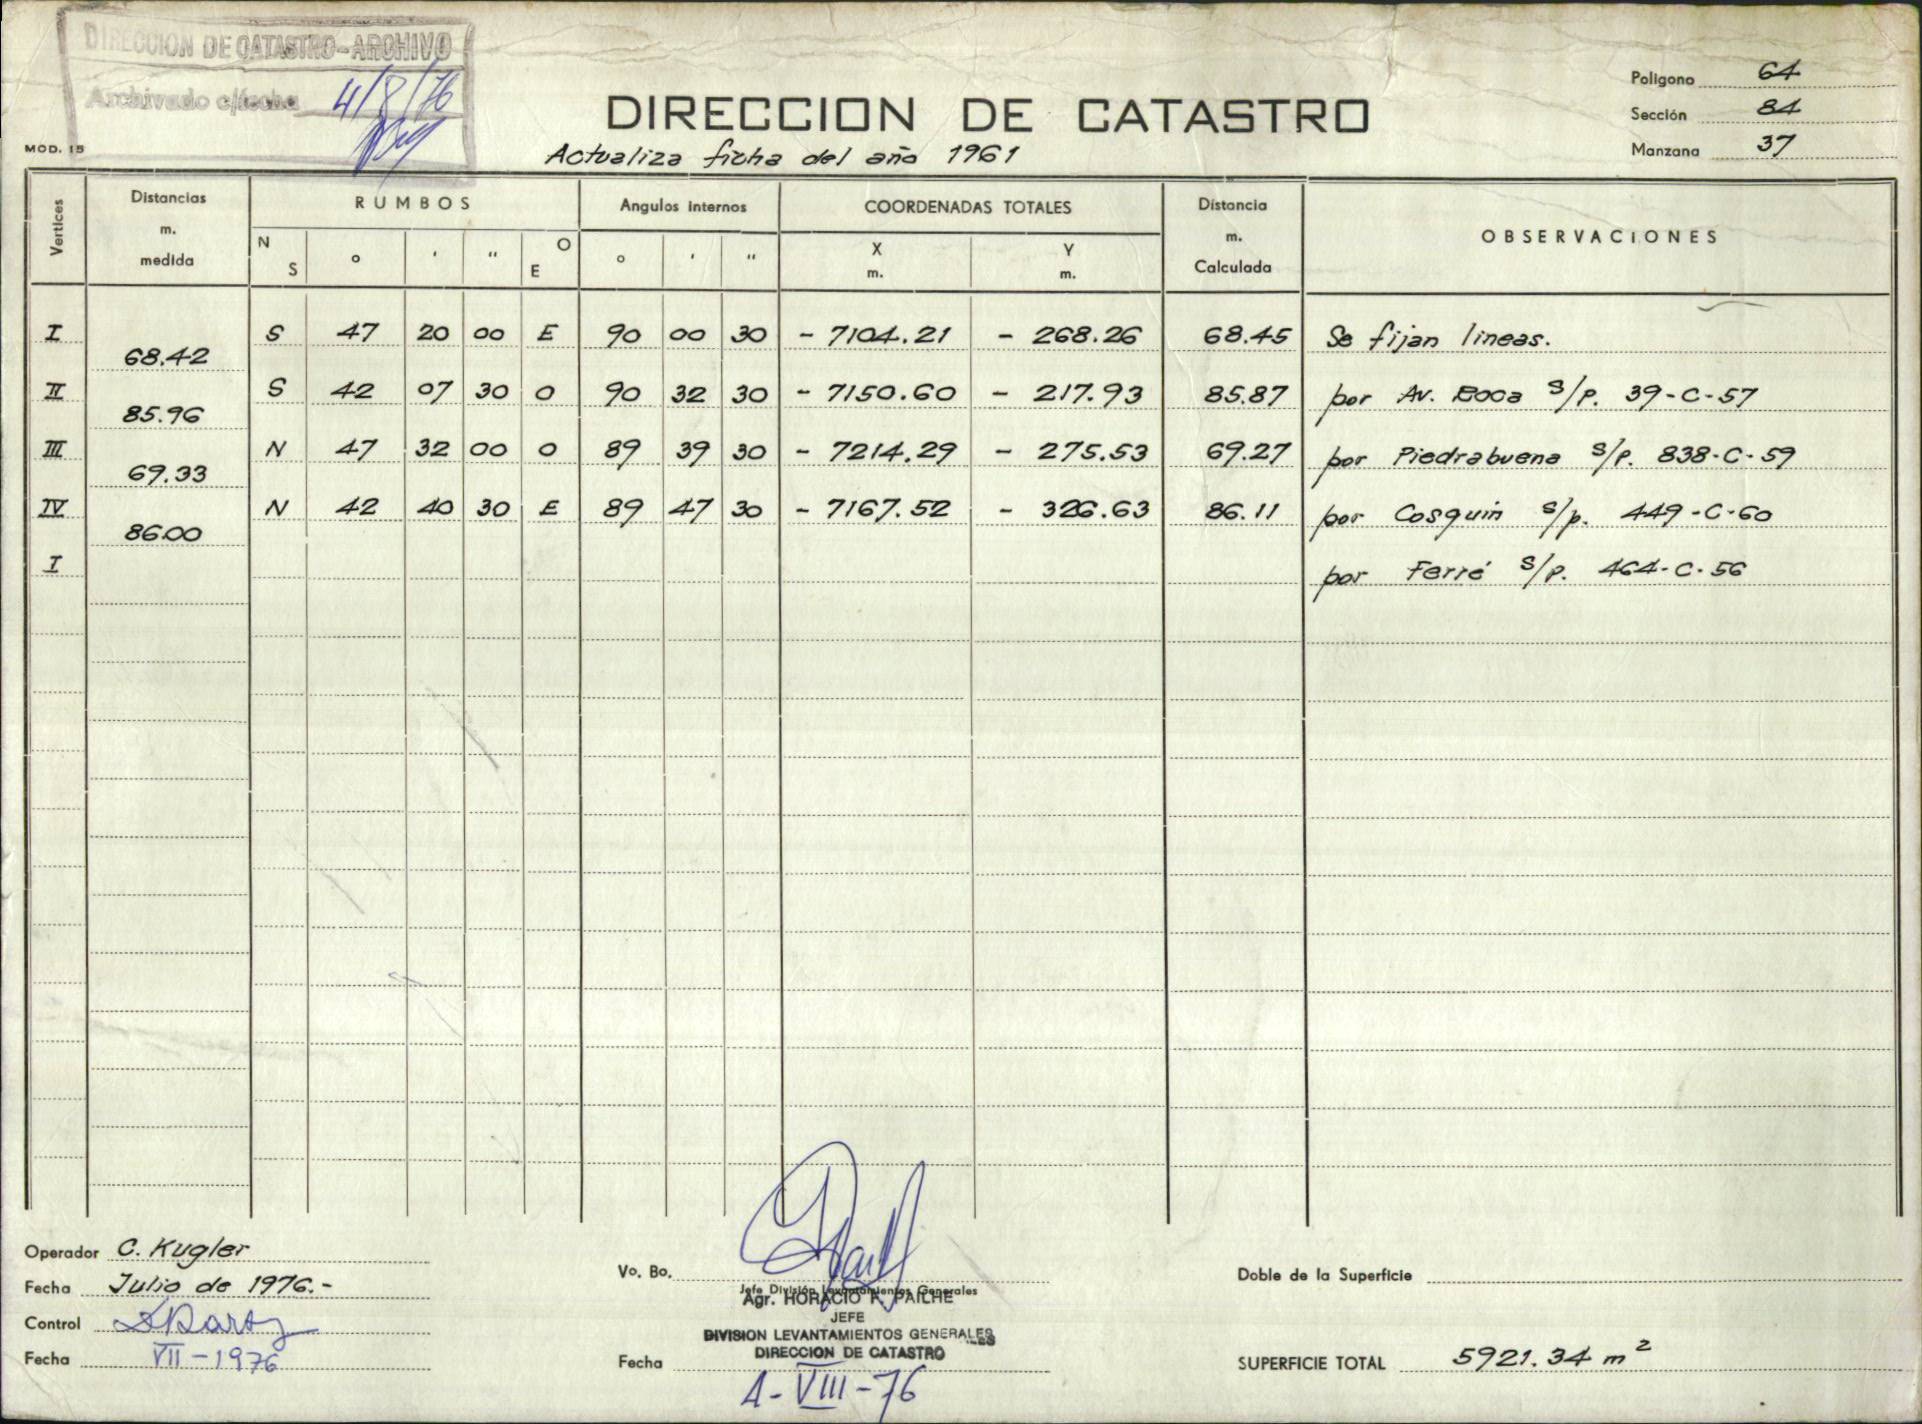 DIRECCION DE CATASTRO-ARCHIVO
Archivado c/fecha 4/8/76
DIRECCION DE CATASTRO
Actualiza ficha del año 1961
Poligono 64
Sección 84
Manzana 37
MOD. 15
Vertices Distancias m. medida RUMBOS Angulos Internos COORDENADAS TOTALES Distancia m. Calculada OBSERVACIONES
N S ° ' " O E ° ' " X m. Y m.
I S 47 20 00 E 90 00 30 - 7104.21 - 268.26 68.45 Se fijan lineas.
68.42
II S 42 07 30 O 90 32 30 - 7150.60 - 217.93 85.87 por Av. Roca s/p. 39-C-57
85.96
III N 47 32 00 O 89 39 30 - 7214.29 - 275.53 69.27 por Piedrabuena s/p. 838-C-59
69.33
IV N 42 40 30 E 89 47 30 - 7167.52 - 326.63 86.11 por Cosquin s/p. 449-C-60
86.00
I por Ferré s/p. 464-C-56
Operador C. Kugler
Fecha Julio de 1976.-
Control
Fecha VII-1976
Vo. Bo.
Jefe División Levantamientos Generales
Agr. HORACIO F. PAILHE
JEFE
DIVISION LEVANTAMIENTOS GENERALES
DIRECCION DE CATASTRO
Fecha 4-VIII-76
Doble de la Superficie
SUPERFICIE TOTAL 5921.34 m²